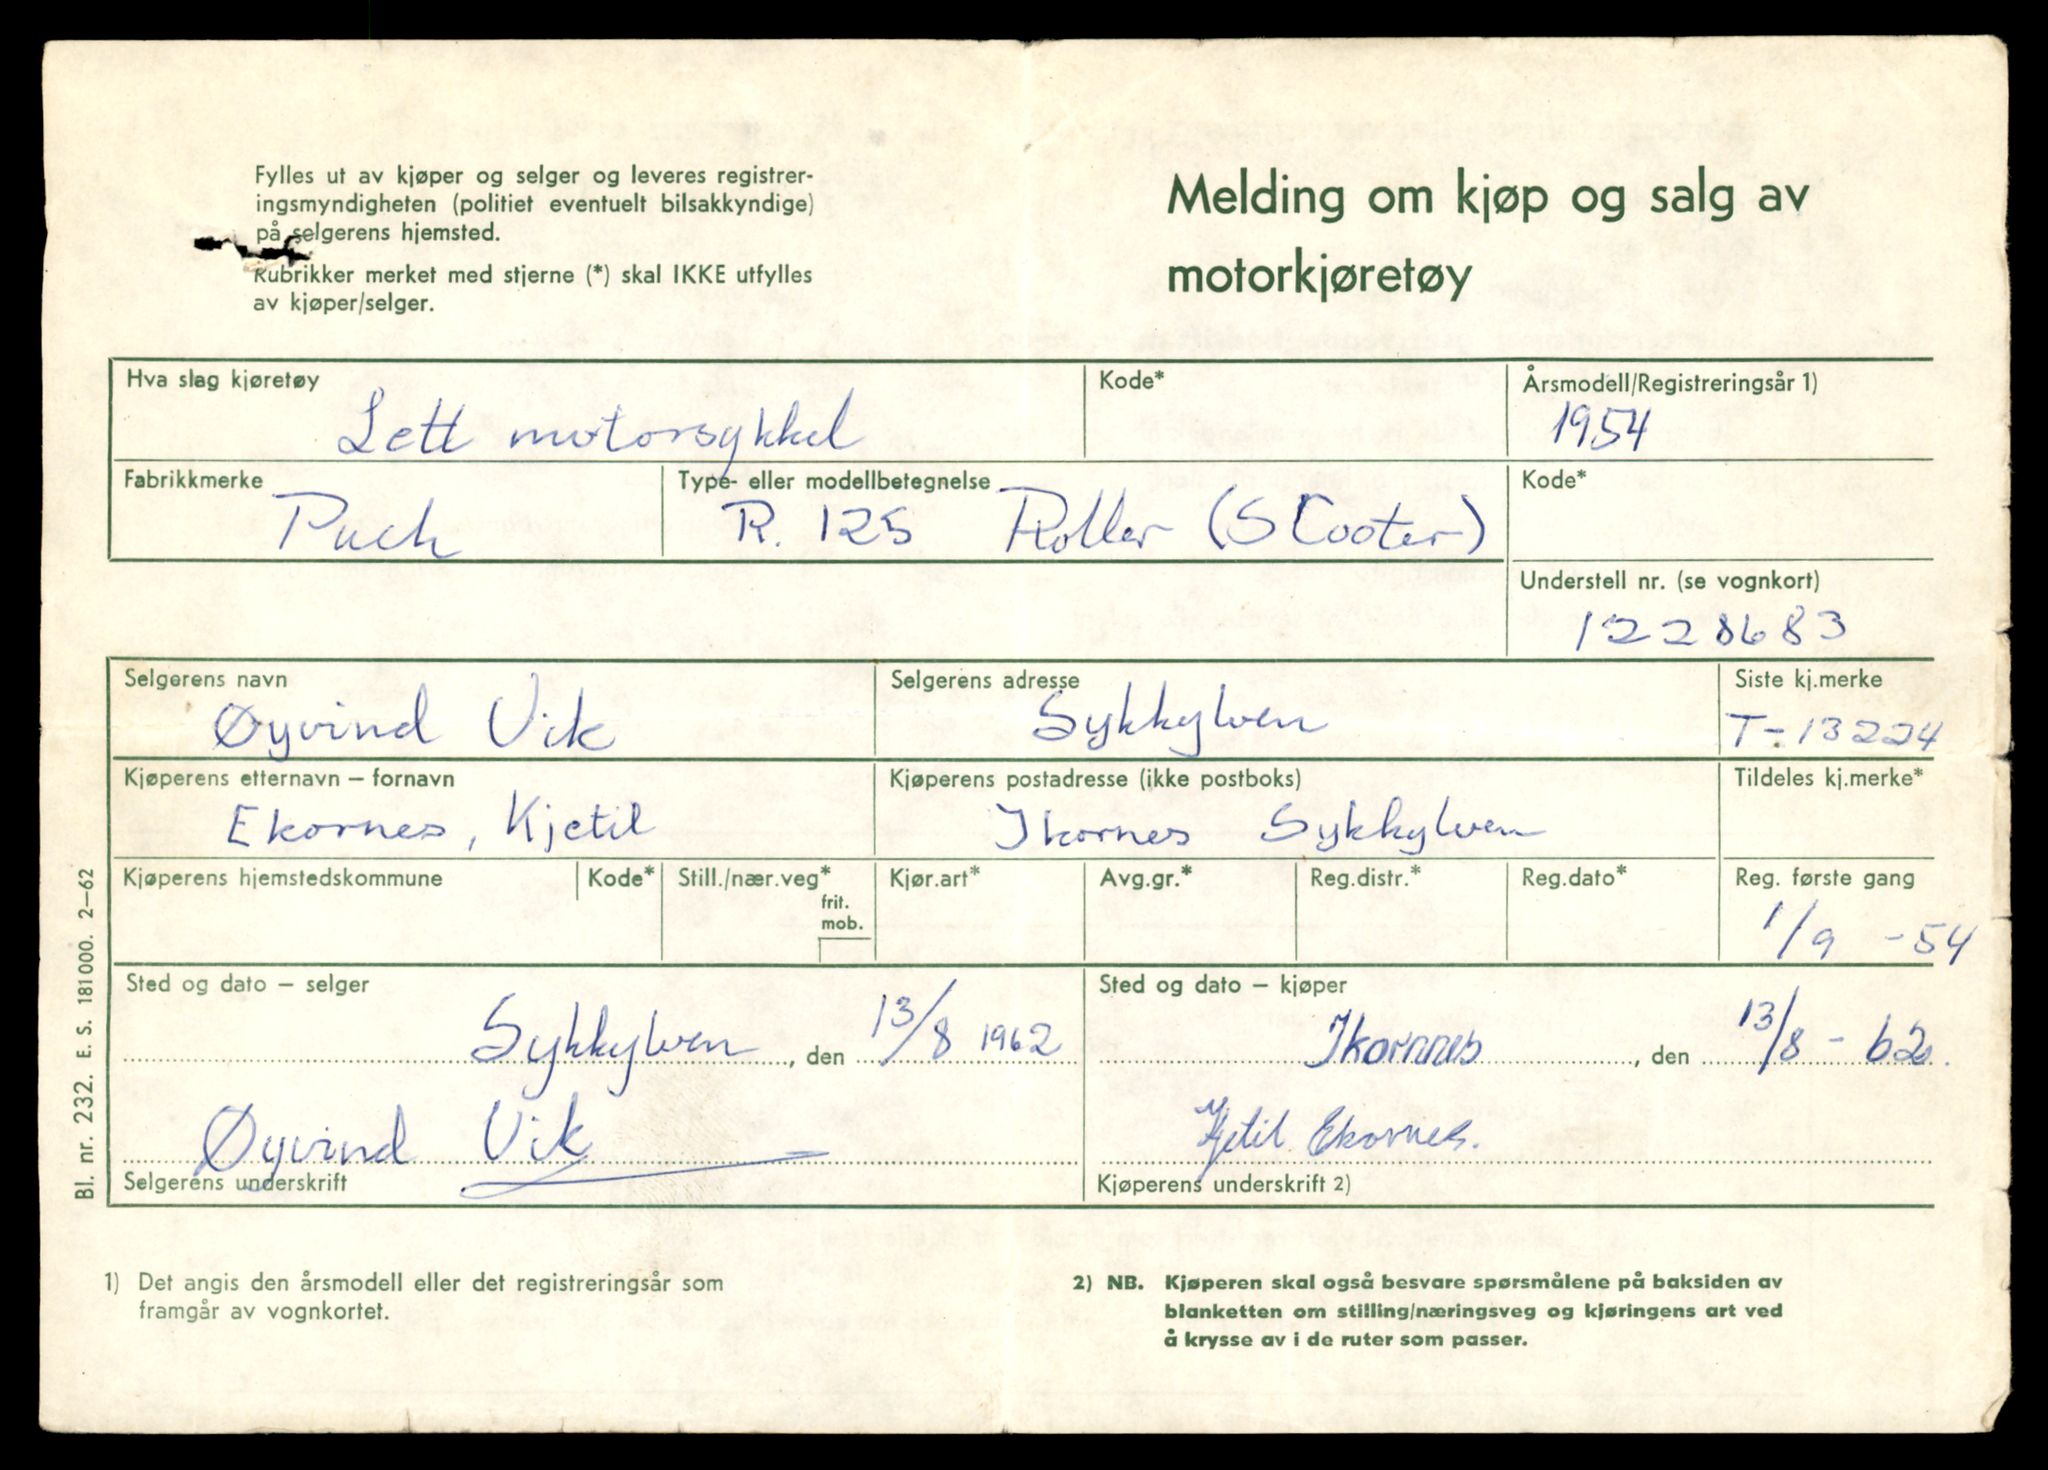 Fylles ut av kjøper og selger og leveres registrer-
ingsmyndigheten (politiet eventuelt bilsakkyndige)
på selgerens hjemsted.
Rubrikker merket med stjerne (*) skal IKKE utfylles
av kjøper/selger.
Melding om kjøp og salg av
motorkjøretøy
Hva slag kjøretøy
Lett motorsykkel
Kode*
Årsmodell/Registreringsår 1)
1954
Fabrikkmerke
Puch
Type- eller modellbetegnelse
R. 125 Roller (SCooter)
Kode*
Understell nr. (se vognkort)
1228683
Selgerens navn
Øyvind Vik
Selgerens adresse
Sykkylven
Siste kj.merke
T-13224
Kjøperens etternavn – fornavn
Ekornes, Kjetil
Kjøperens postadresse (ikke postboks)
Ikornes Sykkylven
Tildeles kj.merke*
Kjøperens hjemstedskommune
Kode*
Still./nær.veg*
frit.
mob.
Kjør.art*
Avg.gr.*
Reg.distr.*
Reg.dato*
Reg. første gang
1/9 -54
Sted og dato – selger
Sykkylven, den 13/8 1962
Sted og dato – kjøper
Ikornnes, den 13/8 - 62.
Øyvind Vik
Selgerens underskrift
Kjetil Ekornes.
Kjøperens underskrift 2)
Bl. nr. 232. E. S. 181000. 2–62
1) Det angis den årsmodell eller det registreringsår som
framgår av vognkortet.
2) NB. Kjøperen skal også besvare spørsmålene på baksiden av
blanketten om stilling/næringsveg og kjøringens art ved
å krysse av i de ruter som passer.